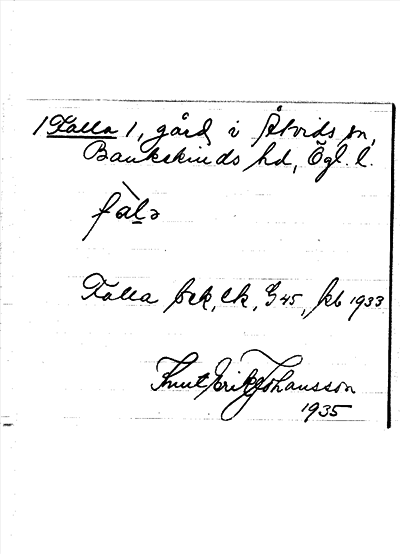 /Falla/, gård i Åtvids sn,
Bankekinds hd, Ögl. l.
fàlə
Falla bek, ek, G 45, kb 1933
Knut Erik Johansson
1935